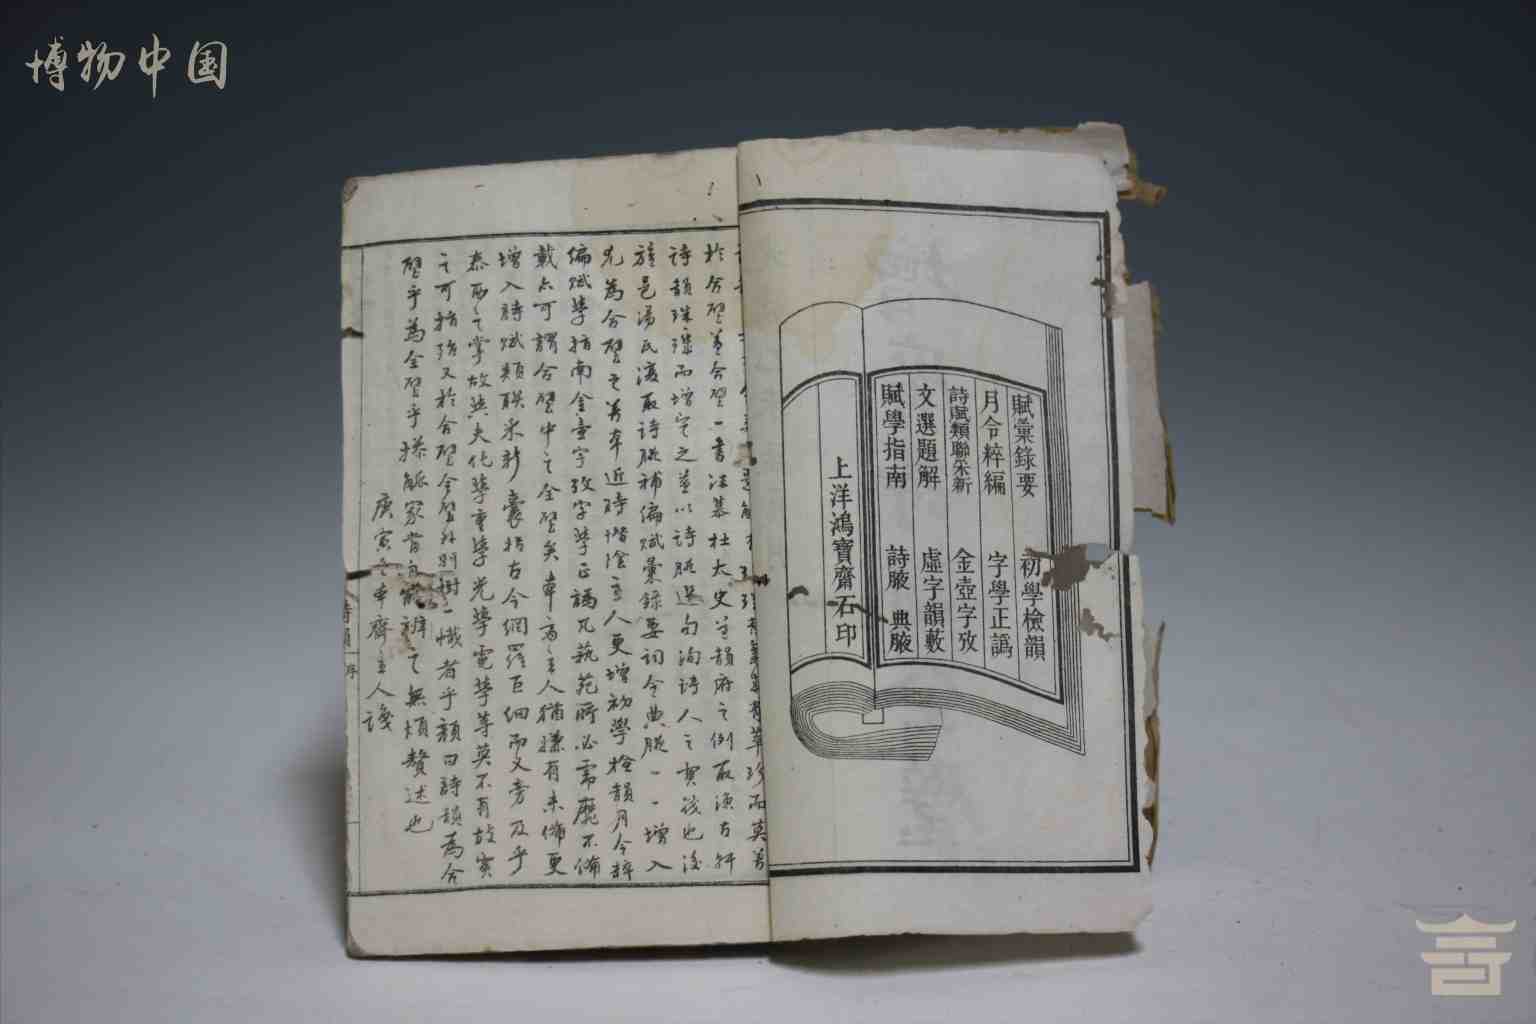 博物中国
賦彙錄要 初學檢韻
月令粹編 字學正譌
詩賦類聯采新 金壺字攷
文選題解 虛字韻藪
賦學指南 詩腋 典腋
上洋鴻寶齋石印
於合璧蓋合璧一書法慕杜大史韻府之例取漁古軒
詩韻珠璣而增定之並以詩腋選句洵詩人之也後
旌邑湯氏復取詩腋補編賦彙錄要詞令典腋一一增入
允為合璧之善本近時惜陰主人更增初學檢韻月令粹
編賦學指南金壺字攷字學正譌凡藝苑所必需靡不備
載亦可謂合璧中之全璧矣本齋主人猶嫌有未備更
增入詩賦類聯采新囊括古今網羅巨細而又旁及乎
泰西之掌故與夫化學重學光學電學等莫不有故實
之可指殆又於合璧全璧外別樹一幟者乎顏曰詩韻為合
璧乎為全璧乎操觚家當自能辨之無煩贅述也
庚寅冬本齋主人識
詩韻 序